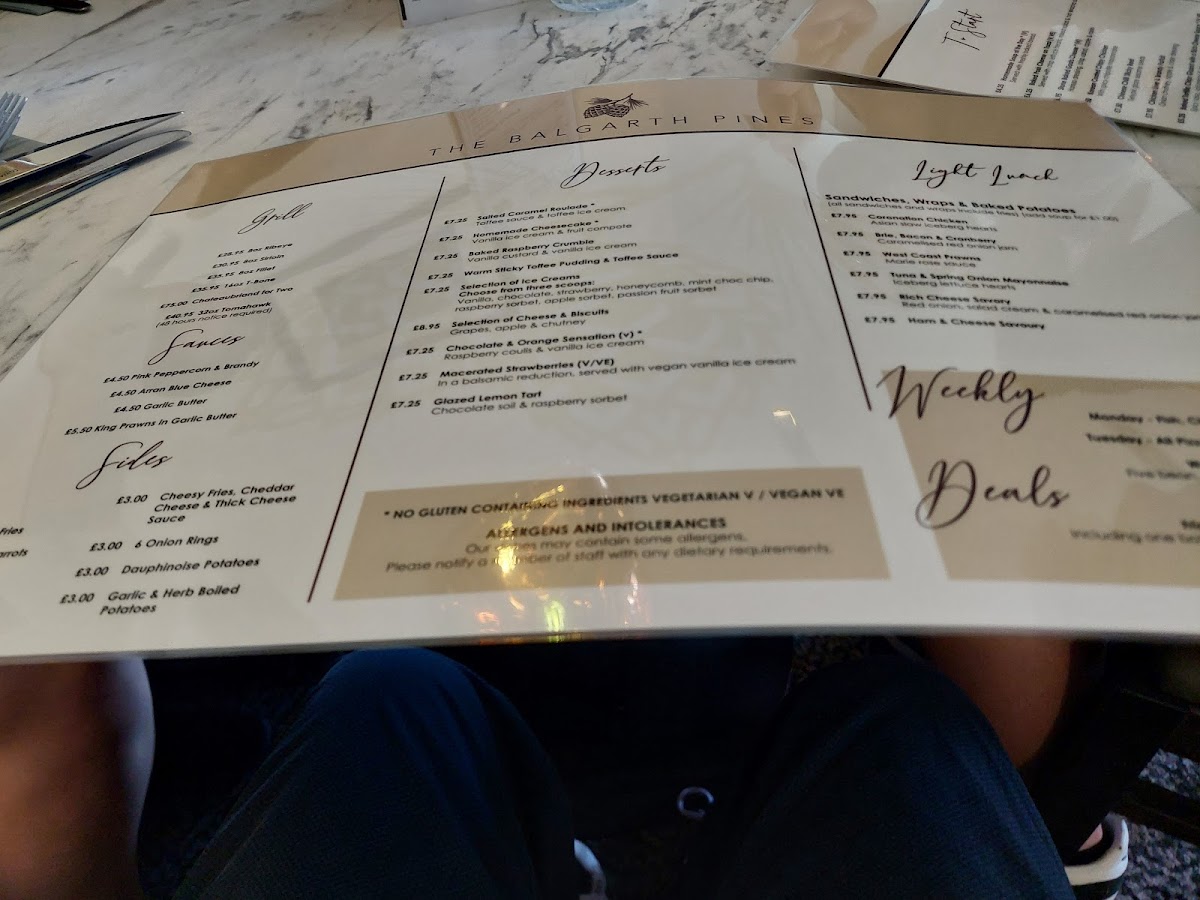 THE BALGARTH PINES
Grill
£28.95 8oz Ribeye
£30.95 8oz Sirloin
£35.95 8oz Fillet
£35.95 16oz T-Bone
£75.00 Chateaubriand for Two
£40.95 32oz Tomahawk
(48 hours notice required)
Sauces
£4.50 Pink Peppercorn & Brandy
£4.50 Arran Blue Cheese
£4.50 Garlic Butter
£5.50 King Prawns in Garlic Butter
Sides
£3.00 Cheesy Fries, Cheddar
Cheese & Thick Cheese
Sauce
£3.00 6 Onion Rings
£3.00 Dauphinoise Potatoes
£3.00 Garlic & Herb Boiled
Potatoes
Fries
Desserts
£7.25 Salted Caramel Roulade *
Toffee sauce & toffee ice cream
£7.25 Homemade Cheesecake *
Vanilla ice cream & fruit compote
£7.25 Baked Raspberry Crumble
Vanilla custard & vanilla ice cream
£7.25 Warm Sticky Toffee Pudding & Toffee Sauce
£7.25 Selection of Ice Creams
Choose from three scoops:
Vanilla, chocolate, strawberry, honeycomb, mint choc chip,
raspberry sorbet, apple sorbet, passion fruit sorbet
£8.95 Selection of Cheese & Biscuits
Grapes, apple & chutney
£7.25 Chocolate & Orange Sensation (v) *
Raspberry coulis & vanilla ice cream
£7.25 Macerated Strawberries (V/VE)
In a balsamic reduction, served with vegan vanilla ice cream
£7.25 Glazed Lemon Tart
Chocolate soil & raspberry sorbet
* NO GLUTEN CONTAINING INGREDIENTS VEGETARIAN V / VEGAN VE
ALLERGENS AND INTOLERANCES
Our dishes may contain some allergens.
Please notify a member of staff with any dietary requirements.
Light Lunch
Sandwiches, Wraps & Baked Potatoes
(all sandwiches and wraps include fries) (add soup for £1.00)
£7.95 Coronation Chicken
Asian slaw iceberg hearts
£7.95 Brie, Bacon & Cranberry
Caramelised red onion jam
£7.95 West Coast Prawns
Marie rose sauce
£7.95 Tuna & Spring Onion Mayonnaise
Iceberg lettuce hearts
£7.95 Rich Cheese Savory
Red onion, salad cream & caramelised red onion
£7.95 Ham & Cheese Savoury
Weekly
Deals
Monday - Fish,
Tuesday - All
Five bean
Including one
To Start